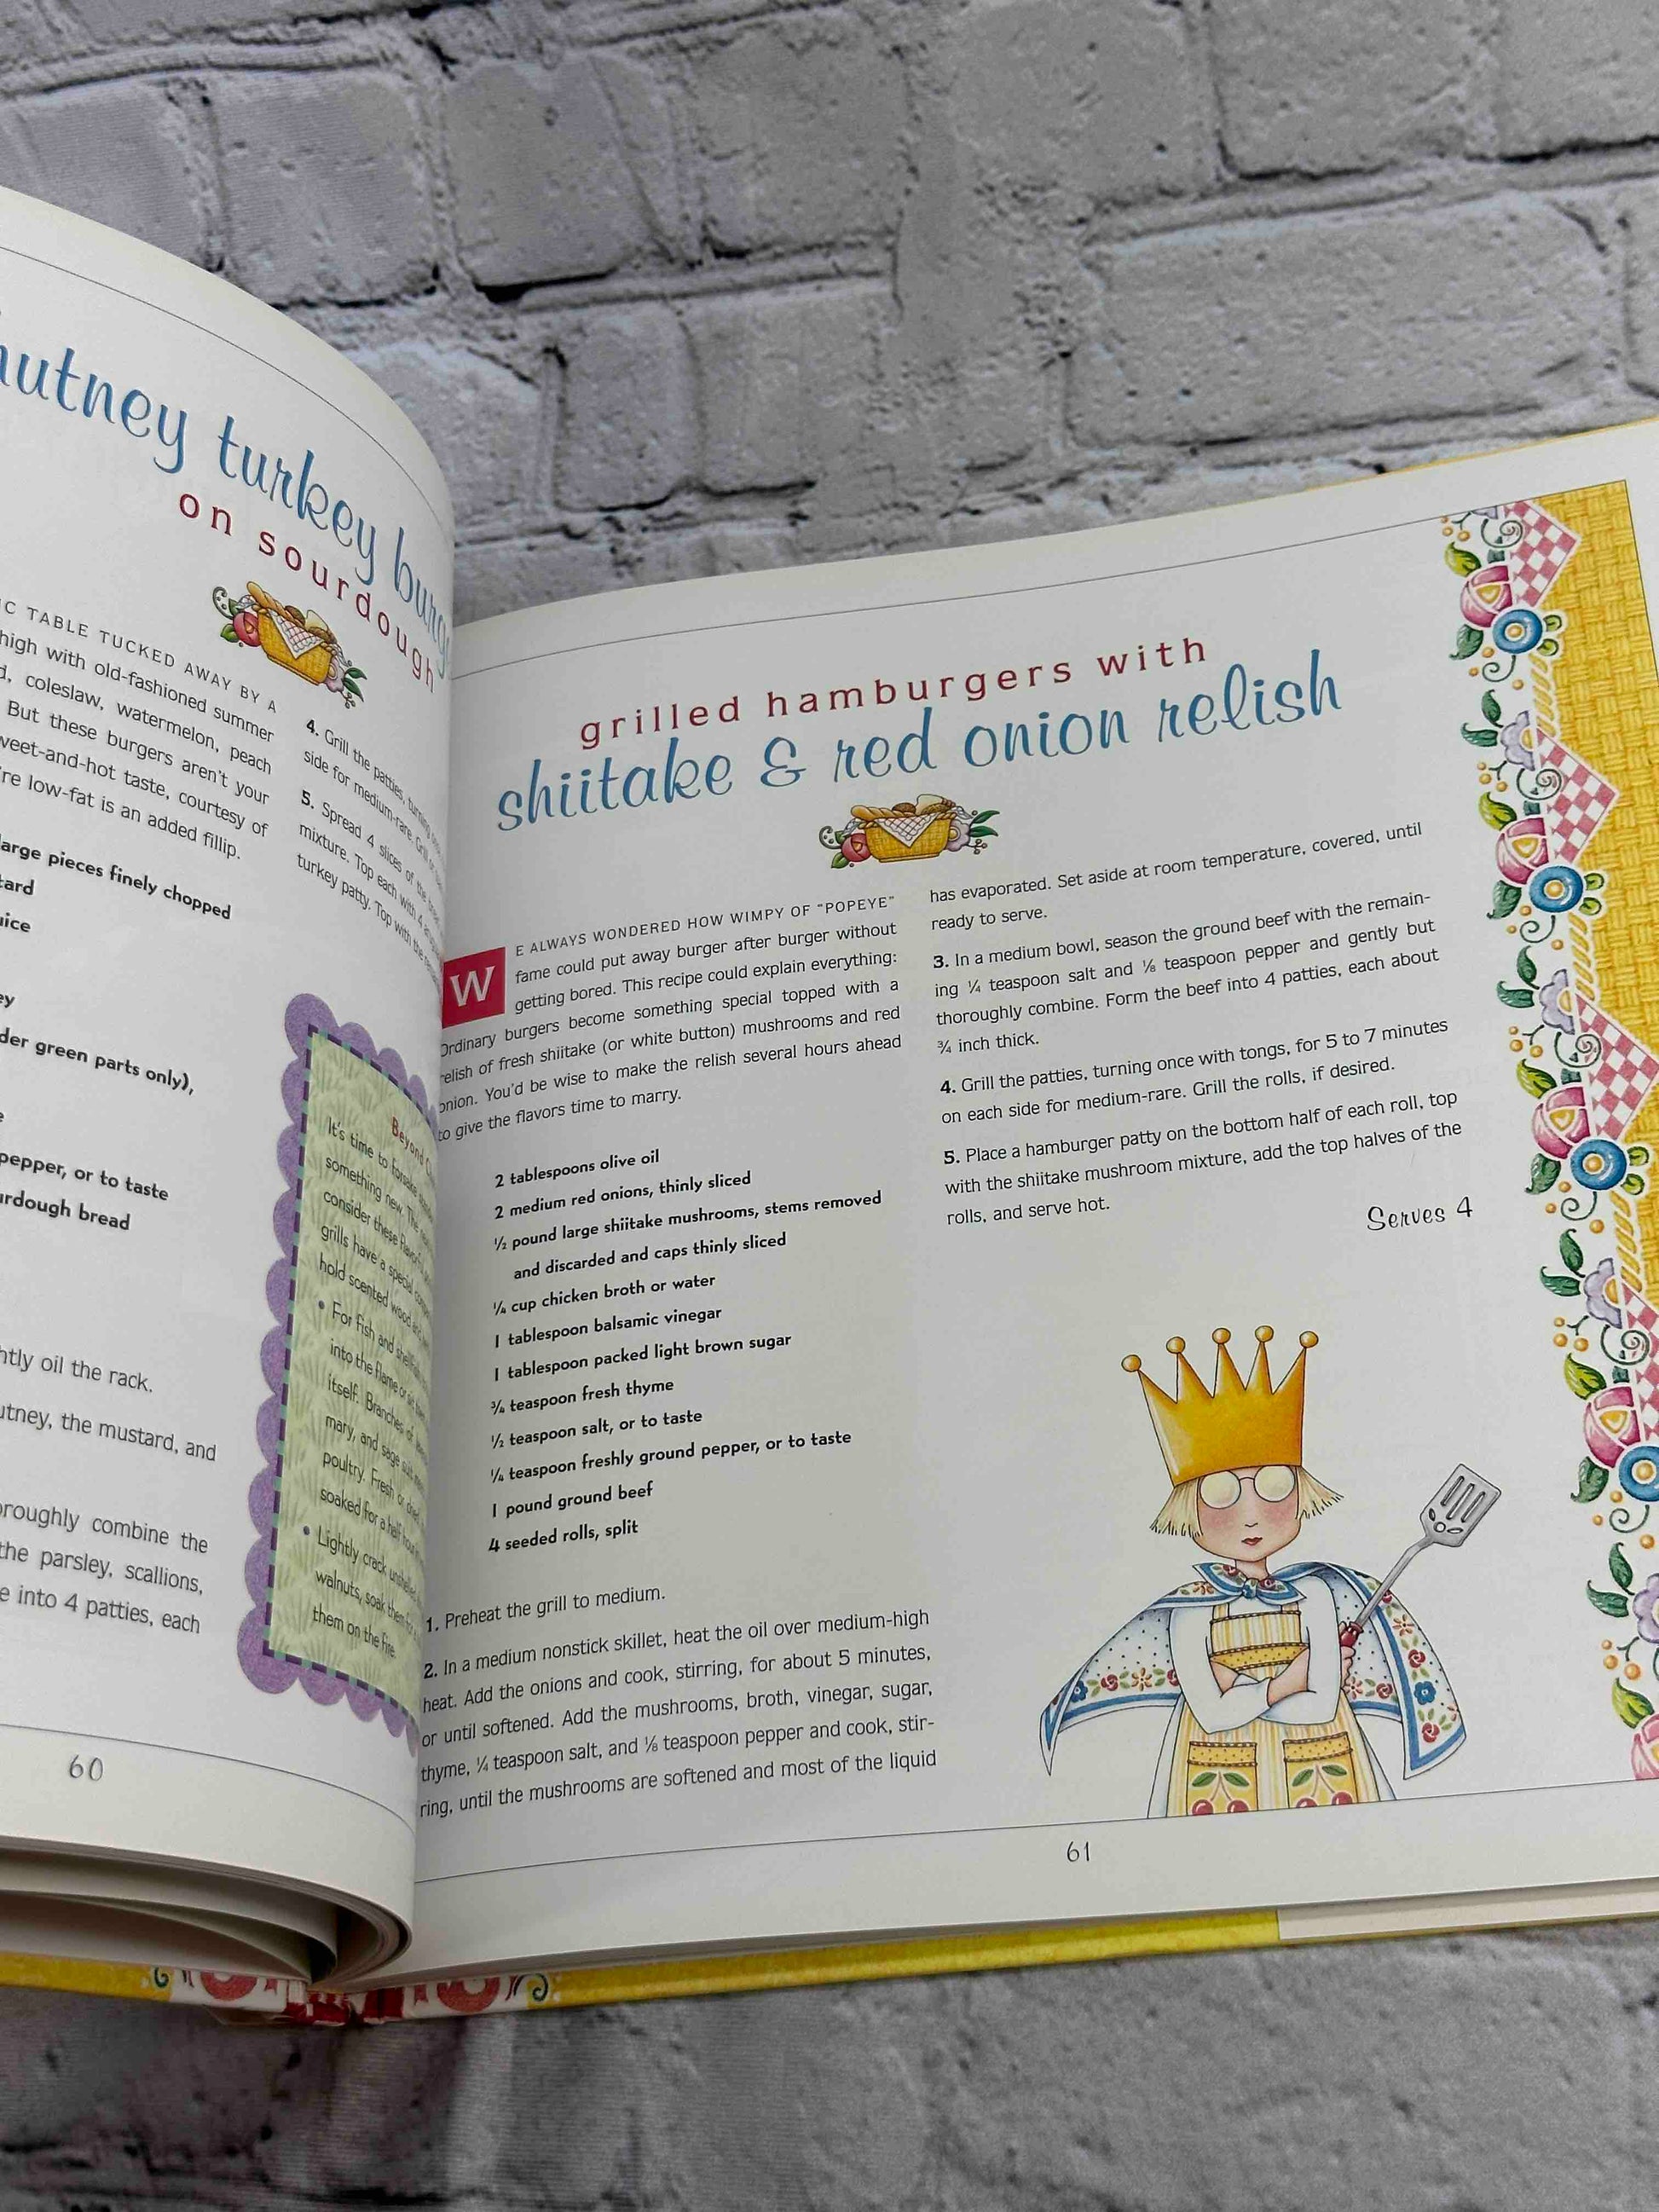 turkey
on sourdough
C TABLE TUCKED AWAY BY A
high with old-fashioned summer
coleslaw, watermelon, peach
But these burgers aren't your
taste, courtesy of
low-fat is an added fillip.
large pieces finely chopped
green parts only),
pepper, or to taste
bread
oil the rack.
the mustard, and
combine the
the parsley, scallions,
into 4 patties, each
4. Grill the patties, turning
side for medium-rare. Grill
5. Spread 4 slices of the
mixture. Top each with 4
turkey patty. Top with the
Beyond
It's time to forsake
something new. The
consider these flavorful
grills have a special
hold scented wood
• For fish and shellfish
into the flame or
itself. Branches of
mary, and sage
poultry. Fresh or dried
soaked for a half hour
• Lightly crack unshelled
walnuts, soak them
them on the fire.
60
grilled hamburgers with
shiitake & red onion relish
WE ALWAYS WONDERED HOW WIMPY OF "POPEYE"
fame could put away burger after burger without
getting bored. This recipe could explain everything:
Ordinary burgers become something special topped with a
relish of fresh shiitake (or white button) mushrooms and red
onion. You'd be wise to make the relish several hours ahead
to give the flavors time to marry.
2 tablespoons olive oil
2 medium red onions, thinly sliced
½ pound large shiitake mushrooms, stems removed
and discarded and caps thinly sliced
¼ cup chicken broth or water
1 tablespoon balsamic vinegar
1 tablespoon packed light brown sugar
¾ teaspoon fresh thyme
½ teaspoon salt, or to taste
¼ teaspoon freshly ground pepper, or to taste
1 pound ground beef
4 seeded rolls, split
1. Preheat the grill to medium.
2. In a medium nonstick skillet, heat the oil over medium-high
heat. Add the onions and cook, stirring, for about 5 minutes,
or until softened. Add the mushrooms, broth, vinegar, sugar,
thyme, ¼ teaspoon salt, and ⅛ teaspoon pepper and cook, stir-
ring, until the mushrooms are softened and most of the liquid
has evaporated. Set aside at room temperature, covered, until
ready to serve.
3. In a medium bowl, season the ground beef with the remain-
ing ¼ teaspoon salt and ⅛ teaspoon pepper and gently but
thoroughly combine. Form the beef into 4 patties, each about
¾ inch thick.
4. Grill the patties, turning once with tongs, for 5 to 7 minutes
on each side for medium-rare. Grill the rolls, if desired.
5. Place a hamburger patty on the bottom half of each roll, top
with the shiitake mushroom mixture, add the top halves of the
rolls, and serve hot.
Serves 4
61